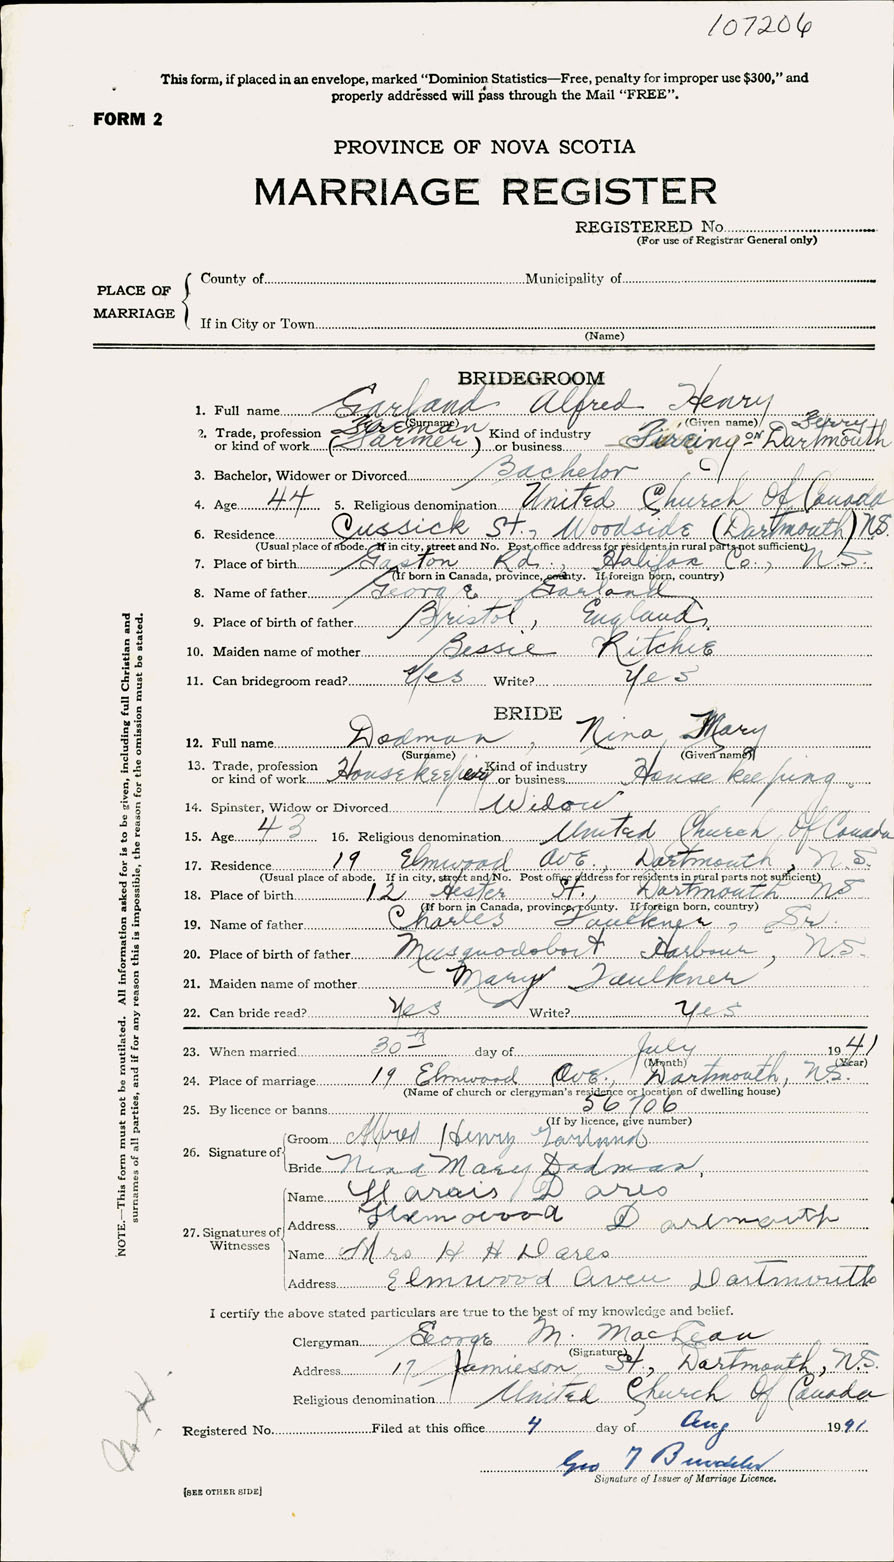 107206
This form, if placed in an envelope, marked “Dominion Statistics—Free, penalty for improper use $300,” and
properly addressed will pass through the Mail “FREE”.
FORM 2
PROVINCE OF NOVA SCOTIA
MARRIAGE REGISTER
REGISTERED No.
(For use of Registrar General only)
PLACE OF MARRIAGE
County of Municipality of
If in City or Town
(Name)
BRIDEGROOM
1. Full name Garland Alfred Henry
(Surname) (Given name)
2. Trade, profession or kind of work Fireman (Farmer) Kind of industry or business Firing on Dartmouth Ferry
3. Bachelor, Widower or Divorced Bachelor
4. Age 44 5. Religious denomination United Church Of Canada
6. Residence Cussick St., Woodside (Dartmouth) N.S.
(Usual place of abode. If in city, street and No. Post office address for residents in rural parts not sufficient)
7. Place of birth Gaston Rd., Halifax Co., N.S.
(If born in Canada, province, county. If foreign born, country)
8. Name of father George Garland
9. Place of birth of father Bristol, England,
10. Maiden name of mother Bessie Ritchie
11. Can bridegroom read? Yes Write? Yes
BRIDE
12. Full name Dodman, Nina Mary
(Surname) (Given name)
13. Trade, profession or kind of work Housekeeping Kind of industry or business House keeping
14. Spinster, Widow or Divorced Widow
15. Age 43 16. Religious denomination United Church Of Canada
17. Residence 19 Elmwood Ave., Dartmouth, N.S.
(Usual place of abode. If in city, street and No. Post office address for residents in rural parts not sufficient)
18. Place of birth 12 Hester St., Dartmouth NS
(If born in Canada, province, county. If foreign born, country)
19. Name of father Charles Faulkner, Sr.
20. Place of birth of father Musquodoboit Harbour, N.S.
21. Maiden name of mother Mary Faulkner
22. Can bride read? Yes Write? Yes
23. When married 30th day of July 1941
(Month) (Year)
24. Place of marriage 19 Elmwood Ave., Dartmouth, N.S.
(Name of church or clergyman's residence or location of dwelling house)
25. By licence or banns 56706
(If by licence, give number)
26. Signature of
Groom Alfred Henry Garland
Bride Nina Mary Dodman,
27. Signatures of Witnesses
Name Dares
Address Dartmouth
Name Mrs H H Dares
Address Elmwood Aven Dartmouth
I certify the above stated particulars are true to the best of my knowledge and belief.
Clergyman George M. MacLean
(Signature)
Address 17 Jamieson St., Dartmouth, N.S.
Religious denomination United Church Of Canada
Registered No. Filed at this office 4 day of Aug 1941
Geo T
Signature of Issuer of Marriage Licence.
[SEE OTHER SIDE]
NOTE.—This form must not be mutilated. All information asked for is to be given, including full Christian and
surnames of all parties, and if for any reason this is impossible, the reason for the omission must be stated.